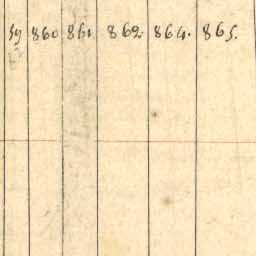 59 860 861. 862. 864. 865.